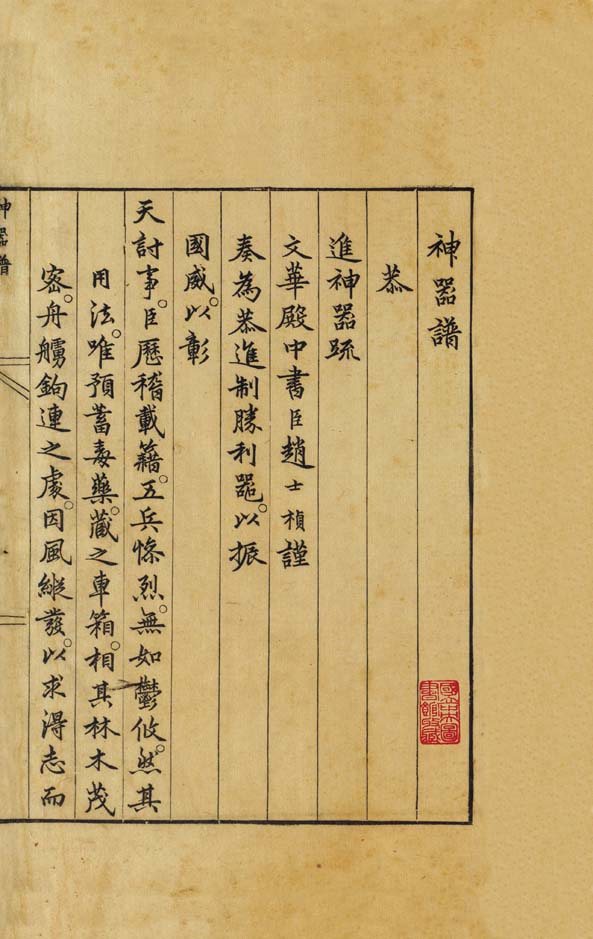 神器譜
恭
進神器疏
文華殿中書臣趙士楨謹
奏為恭進制勝利器。以振
國威。以彰
天討事。臣歷稽載籍。五兵慘烈。無如鬱攸。然其
用法。唯預蓄毒藥。藏之車箱。相其林木茂
密。舟艣鉤連之處。因風縱發。以求淂志而
神器譜